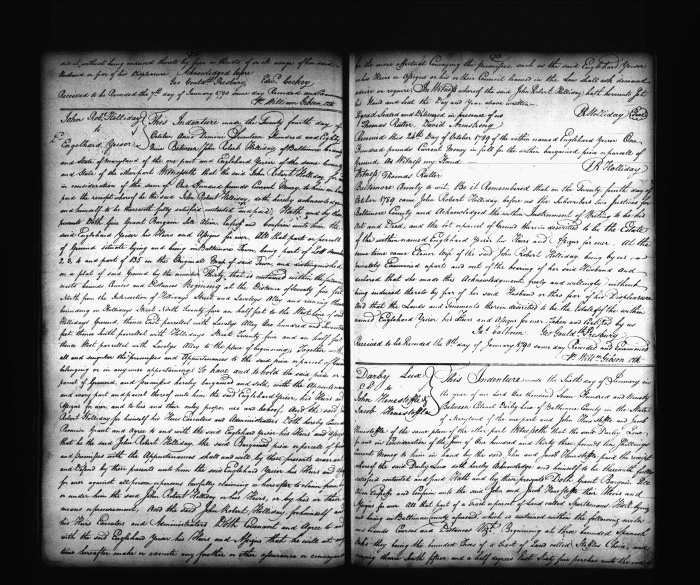 and it, without being induced thereto by fear or threats of or ill usage of her said
Husband or fear of his Displeasure Acknowledged before
Geo Gouldsm Presbury Edwd Cockey
Received to be Recorded the 7th day of January 1790 same day Recorded and Examined
Pr William Gibson Clk
John Robt Holliday
to
Englehard Yeiser
This Indenture made the Twenty fourth day of
October Anno Domini Seventeen Hundred and Eighty
Nine Between John Robert Holliday of Baltimore County
and State of Maryland of the one part and Englehard Yeiser of the same County
and State of the other part Witnesseth that the said John Robert Holliday for
in consideration of the sum of One Hundred pounds Current Money to him in hand
paid the receipt whereof he the said John Robert Holliday doth hereby acknowledge
and himself to be therewith fully satisfied contented and paid, Hath and by these
presents Doth give Grant Bargain Sell Alien Enfeoff and Confirm unto him the
said Englehard Yeiser his Heirs and Assigns for ever All that part or parcell
of Ground situate lying and being in Baltimore Town being part of Lots number
2, 3, 4 and part of 135 on the Original Plat of said Town, and distinguished
on a plat of said Ground by the number Thirty, that is contained within the following
metes bounds Courses and Distances Beginning at the Distance of Seventy five feet
North from the Intersection of Hollidays Street and Lovelys Alley and running thence
bounding on Hollidays Street North Twenty five an half feet to the
Hollidays Ground, thence East parrallel with Lovelys Alley One hundred and
feet thence South parrallel with Hollidays Street Twenty five and an half feet
thence West parrallel with Lovelys Alley to the place of beginning, Together with
all and singular the premises and Appurtenances to the said piece or parcel of Ground
belonging or in anywise appertaining: To have and to hold the said piece or
parcel of Ground, and premises hereby bargained and sold, with the Appurtenances
and every part and parcel thereof unto him the said Englehard Yeiser his Heirs and
Assigns for ever, and to his and their only proper use and behoof. And the said John
Robert Holliday for himself his Heirs Executors and Administrators Doth hereby Covenant
Promise Grant and agree to and with the said Englehard Yeiser his Heirs and Assigns
that he the said John Robert Holliday, the said Bargained piece or parcel of Ground
and premises with the Appurtenances shall and will by these presents warrant
and defend by these presents unto him the said Englehard Yeiser his Heirs and Assigns
for ever against all person or persons lawfully claiming or hereafter to claim from by
or under him the said John Robert Holliday or his Heirs, or by his or their
means or procurement, And the said John Robert Holliday for himself and
his Heirs Executors and Administrators Doth Covenant and Agree to and
with the said Englehard Yeiser his Heirs and Assigns that he will at any
time hereafter make or execute any further or other assurance or conveyance
for the more effectual Conveying the premises, such as the said Englehard Yeiser
his Heirs or Assigns or his or their Council learned in the Law shall ask demand
advise or require: In Witness whereof the said John Robert Holliday hath hereunto set
his Hand and Seal the Day and Year above written
Signed Sealed and Delivered in presence of us
Thomas Rutter, David Armstrong
JR Holliday Seal
Received this 24th Day of October 1789 of the within named Englehard Yeiser One
Hundred pounds Current Money in full for the within bargained piece or parcele of
Ground. As Witness my Hand
JR Holliday
Witness Thomas Rutter
Baltimore County to wit. Be it Remembered that on the Twenty fourth day of
October 1789 came John Robert Holliday before us the Subscribers two Justices for
Baltimore County and Acknowledged the within Instrument of Writing to be his
Act and Deed, and the lot or parcel of Ground therein described to be the Estate
of the within named Englehard Yeiser his Heirs and Assigns for ever. At the
same time came Elenor Wife of the said John Robert Holliday being by us
privately Examined apart and out of the hearing of her said Husband and
declared that she made this Acknowledgement, freely and willingly without
being induced thereto by fear of his said Husband or thro fear of his Displeasure
and that the Lands and Tenements therein described to be the Estate of the within
named Englehard Yeiser his Heirs and Assigns for ever. Taken and Certified by us
Jas Calhoun Geo Gouldsm Presbury
Received to be Recorded the 8th day of January 1790 same day Recorded and Examined
Pr Willm Gibson Clk
Darby Lux
to
John Hanestoffle &
Jacob Hanestoffle
This Indenture made the Sixth day of January in
the year of our Lord One Thousand Seven Hundred and Ninety
Between Colonel Darby Lux of Baltimore County in the State
of Maryland of the one part and John Hanestoffle and Jacob
Hanestoffle of the same place of the other part Witnesseth that the said Darby Lux
for and in Consideration of the sum of One hundred and thirty three pounds
Current Money to him in hand by the said John and Jacob Hanestoffle paid the receipt
whereof the said Darby Lux doth hereby Acknowledge and himself to be therewith fully
satisfied contented and paid Hath and by these presents Doth Grant Bargain Sell
Alien Enfeoff and Confirm unto the said John and Jacob Hanestoffle their Heirs and
Assigns for ever All that part of a tract or parcel of Land called Sportsmans Hall lying
and being in Baltimore County aforesaid, which is contained within the following metes
and bounds Courses and Distances Vizt. Beginning at three bounded Spanish
Oaks they being the bounded trees of a tract of Land called Stoffles Choice, and
running thence South fifteen and a half degrees East Sixty five perches unto the end of